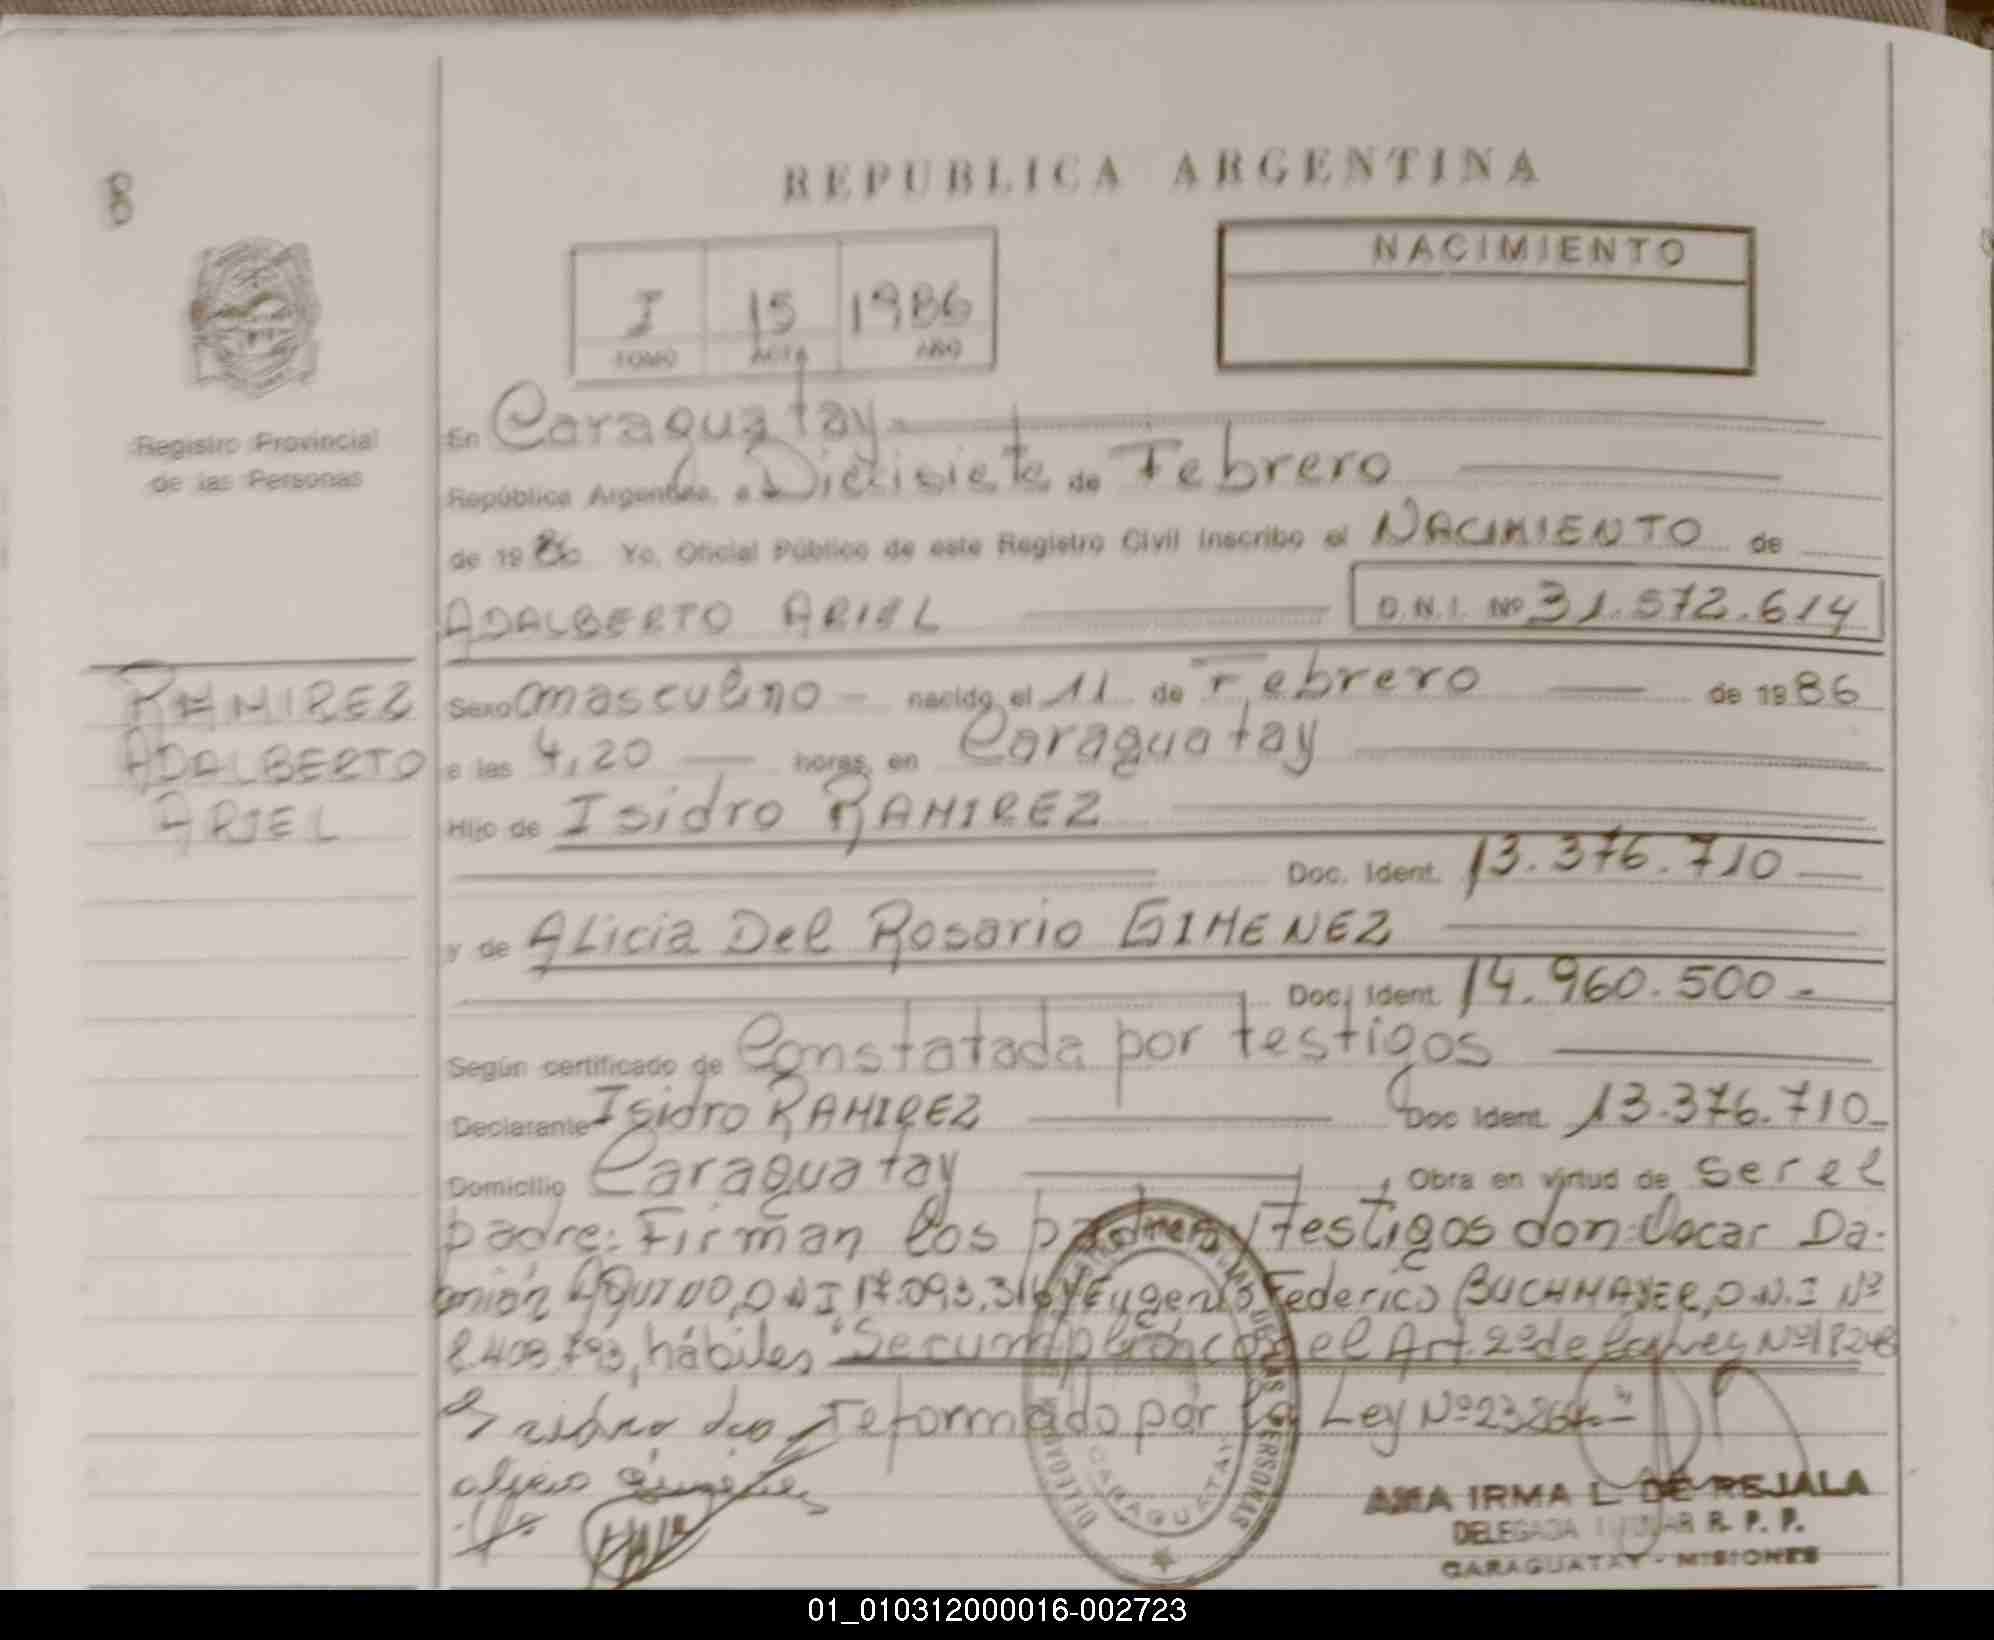 8
REPUBLICA ARGENTINA
NACIMIENTO
I 15 1986
TOMO ACTA AÑO
Registro Provincial
de las Personas
En Caraguatay
República Argentina, a Diecisiete de Febrero
de 1986 Yo, Oficial Público de este Registro Civil inscribo el NACIMIENTO de
ADALBERTO ARIEL D.N.I. Nº 31.572.614
RAMIREZ
ADALBERTO
ARIEL
Sexo masculino nacido el 11 de Febrero de 1986
a las 4,20 horas, en Caraguatay
Hijo de Isidro RAMIREZ
Doc. Ident. 13.376.710
y de ALicia Del Rosario GIMENEZ
Doc. Ident. 14.960.500-
Según certificado de Constatada por testigos
Declarante Isidro RAMIREZ Doc Ident. 13.376.710
Domicilio Caraguatay, Obra en virtud de Ser el
padre: Firman los padres y Testigos don: Oscar Da-
mián AQUINO, D N I 17.093.316 y Eugenio Federico BUCHMAYER, D.N.I Nº
hábiles "Se cumplió con el Art. 2º de la Ley Nº 18248
reformado por la Ley Nº 23264.-"
DE LAS PERSONAS
CARAGUATAY
ANA IRMA L DE REJALA
DELEGADA TITULAR R. P. P.
CARAGUATAY - MISIONES
01_010312000016-002723